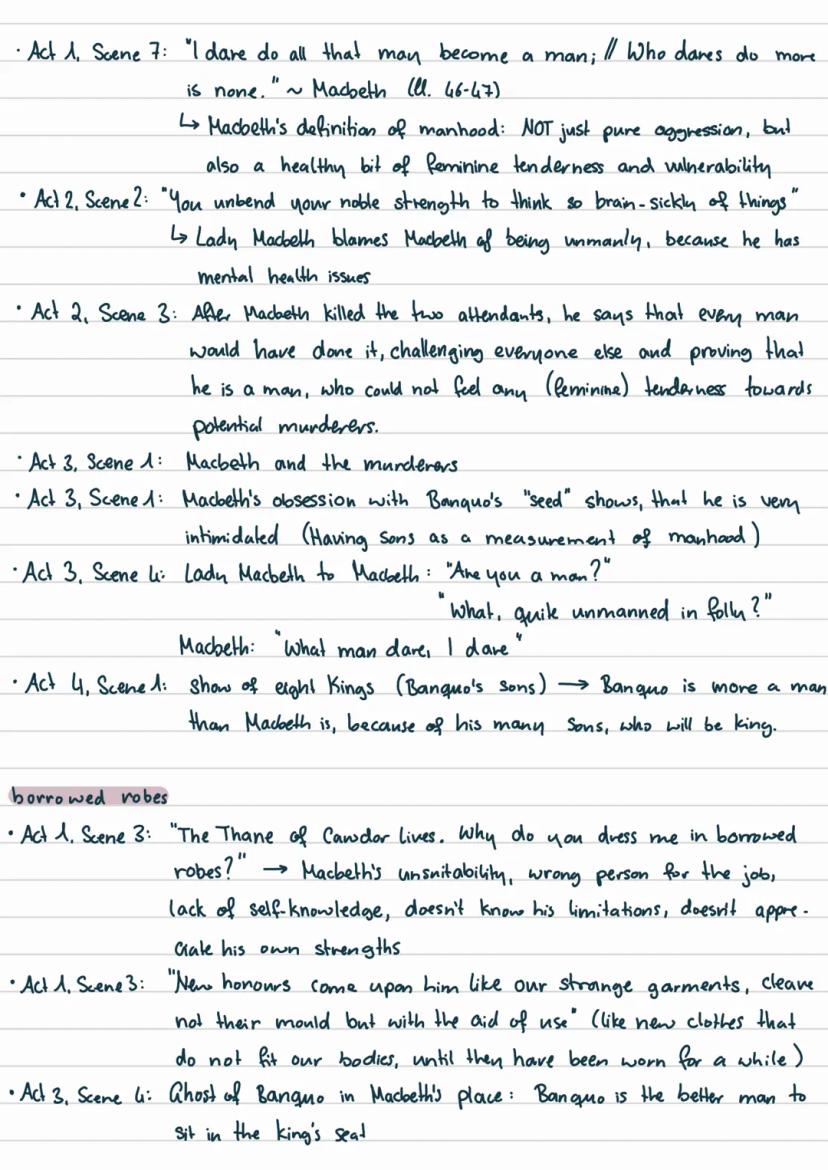 · Act 1, Scene 7: "I dare do all that may become a man; // Who dares do more
is none." ~ Macbeth (ll. 46-47)
↳ Macbeth's definition of manhood: NOT just pure aggression, but
also a healthy bit of feminine tenderness and vulnerability
· Act 2, Scene 2: "You unbend your noble strength to think so brain-sickly of things"
↳ Lady Macbeth blames Macbeth of being unmanly, because he has
mental health issues
· Act 2, Scene 3: After Macbeth killed the two attendants, he says that every man
would have done it, challenging everyone else and proving that
he is a man, who could not feel any (feminine) tenderness towards
potential murderers.
· Act 3, Scene 1: Macbeth and the murderers
· Act 3, Scene 1: Macbeth's obsession with Banquo's "seed" shows, that he is very
intimidated (Having sons as a measurement of manhood)
· Act 3, Scene 4: Lady Macbeth to Macbeth: "Are you a man?"
"What, quite unmanned in folly?"
Macbeth: "What man dare, I dare"
· Act 4, Scene 1: show of eight Kings (Banquo's sons) → Banquo is more a man
than Macbeth is, because of his many sons, who will be king.
borrowed robes
· Act 1, Scene 3: "The Thane of Cawdor lives. Why do you dress me in borrowed
robes?" → Macbeth's unsuitability, wrong person for the job,
lack of self-knowledge, doesn't know his limitations, doesn't appre-
ciate his own strengths
· Act 1, Scene 3: "New honours come upon him like our strange garments, cleave
not their mould but with the aid of use" (like new clothes that
do not fit our bodies, until they have been worn for a while)
· Act 3, Scene 4: Ghost of Banquo in Macbeth's place: Banquo is the better man to
sit in the king's seat